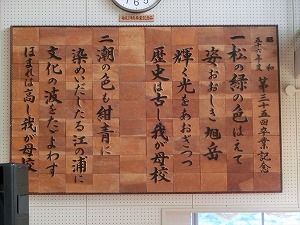 昭和
五十六年度 第三十五回卒業記念
一 松の緑の色はえて
姿おおしき旭岳
輝く光をあおぎつつ
歴史は古し我が母校
二 潮の色も紺青に
染めいだしたる江の浦に
文化の波をただよわす
ほまれは高し我が母校